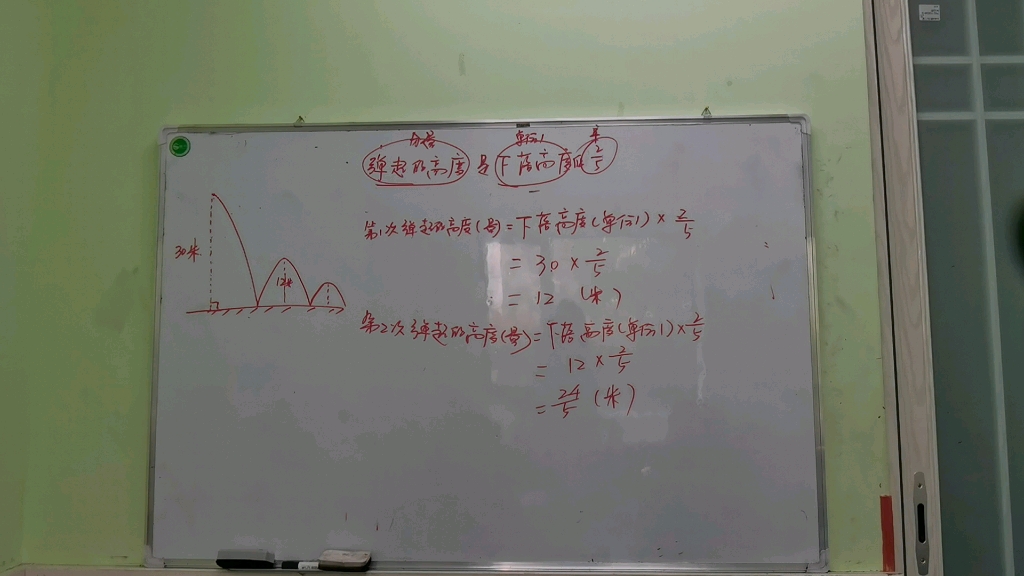 分量 单位1 率
弹起的高度是下落高度的2/5
第1次弹起的高度(量)=下落高度(单位1)×2/5
=30×2/5
=12 (米)
30米
12米
第2次弹起的高度(量)=下落高度(单位1)×2/5
=12×2/5
=24/5 (米)